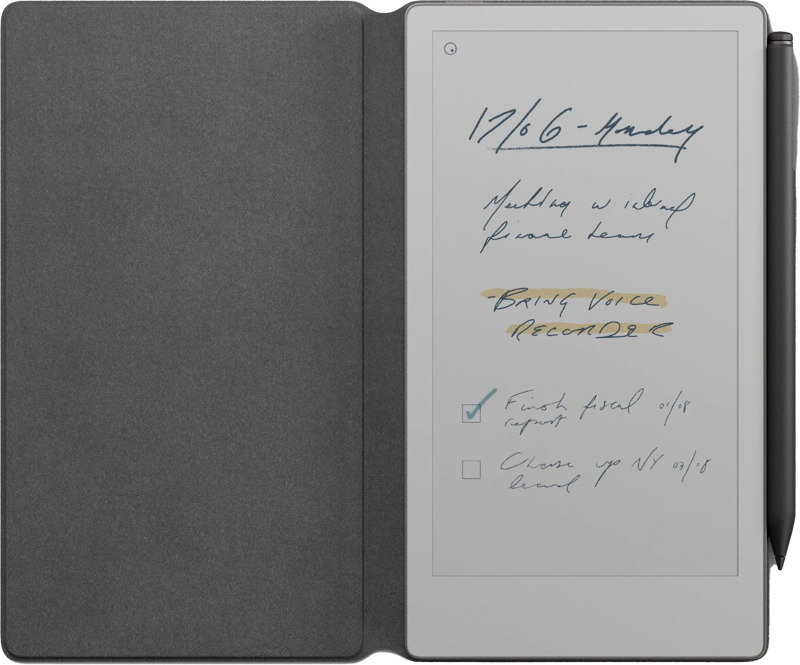 17/06 - Monday
Meeting w
finance team
- BRING VOICE
RECORDER
Finish fiscal 01/08
report
NY 03/08